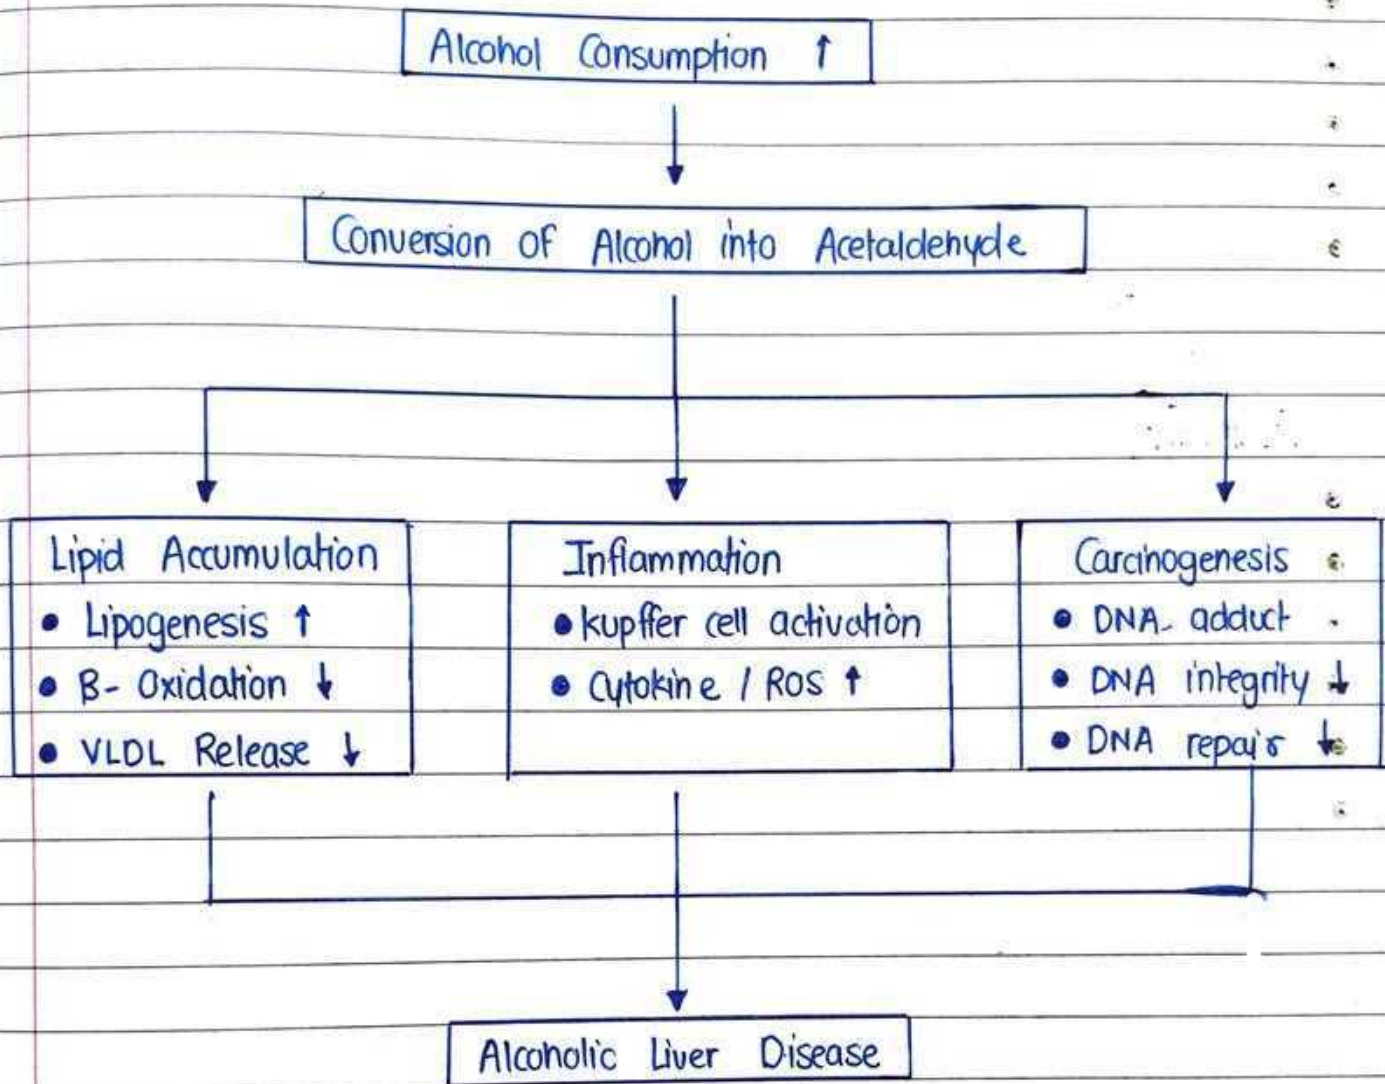 Alcohol Consumption ↑
Conversion of Alcohol into Acetaldehyde
Lipid Accumulation
• Lipogenesis ↑
• B- Oxidation ↓
• VLDL Release ↓
Inflammation
• kupffer cell activation
• Cytokine / ROS ↑
Carcinogenesis
• DNA- adduct
• DNA integrity ↓
• DNA repair ↓
Alcoholic Liver Disease